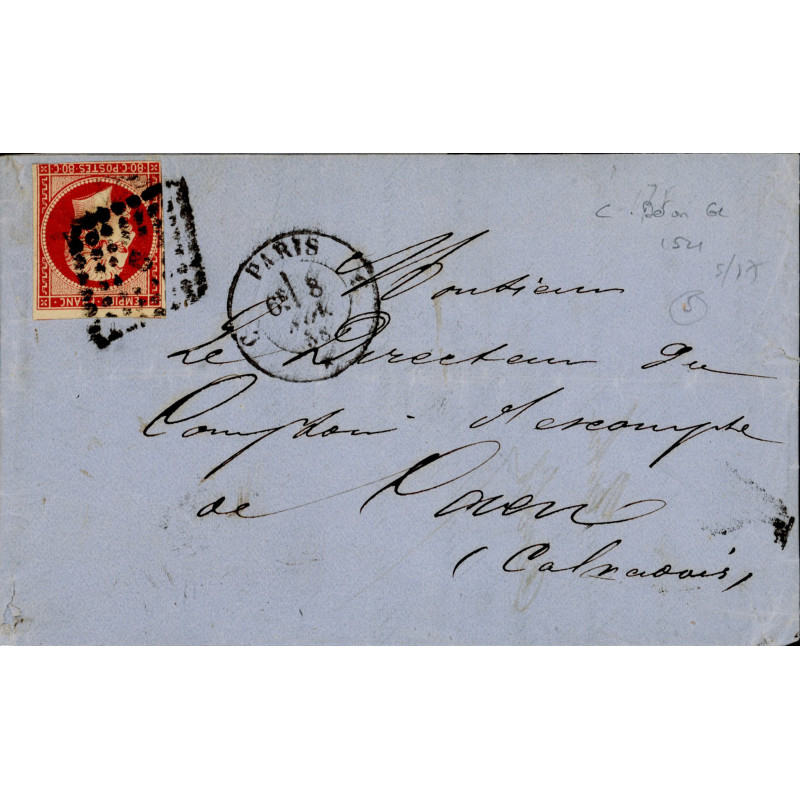 80·C·POSTES·80·C
EMPIRE FRANC
PARIS
8
58
Monsieur
Le Directeur du
Comptoir d'escompte
de Caen
(Calvados)
154
5